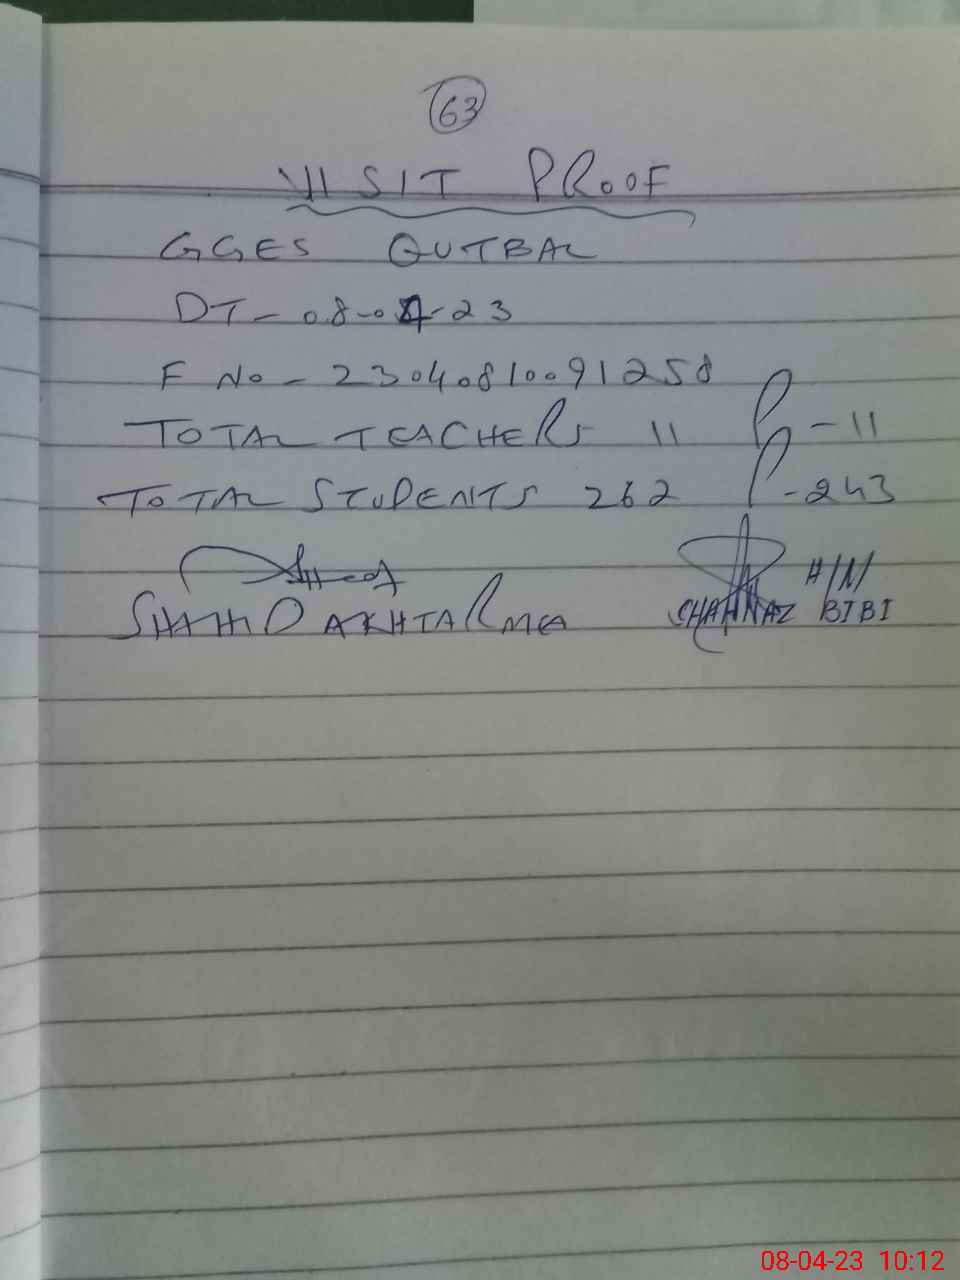 63
VISIT PROOF
GGES QUTBAL
DT - 08-04-23
F No - 23040810091258
TOTAL TEACHERS 11 P - 11
TOTAL STUDENTS 262 P - 243
SHAHID AKHTAR MEA
H/M
SHAHNAZ BIBI
08-04-23 10:12